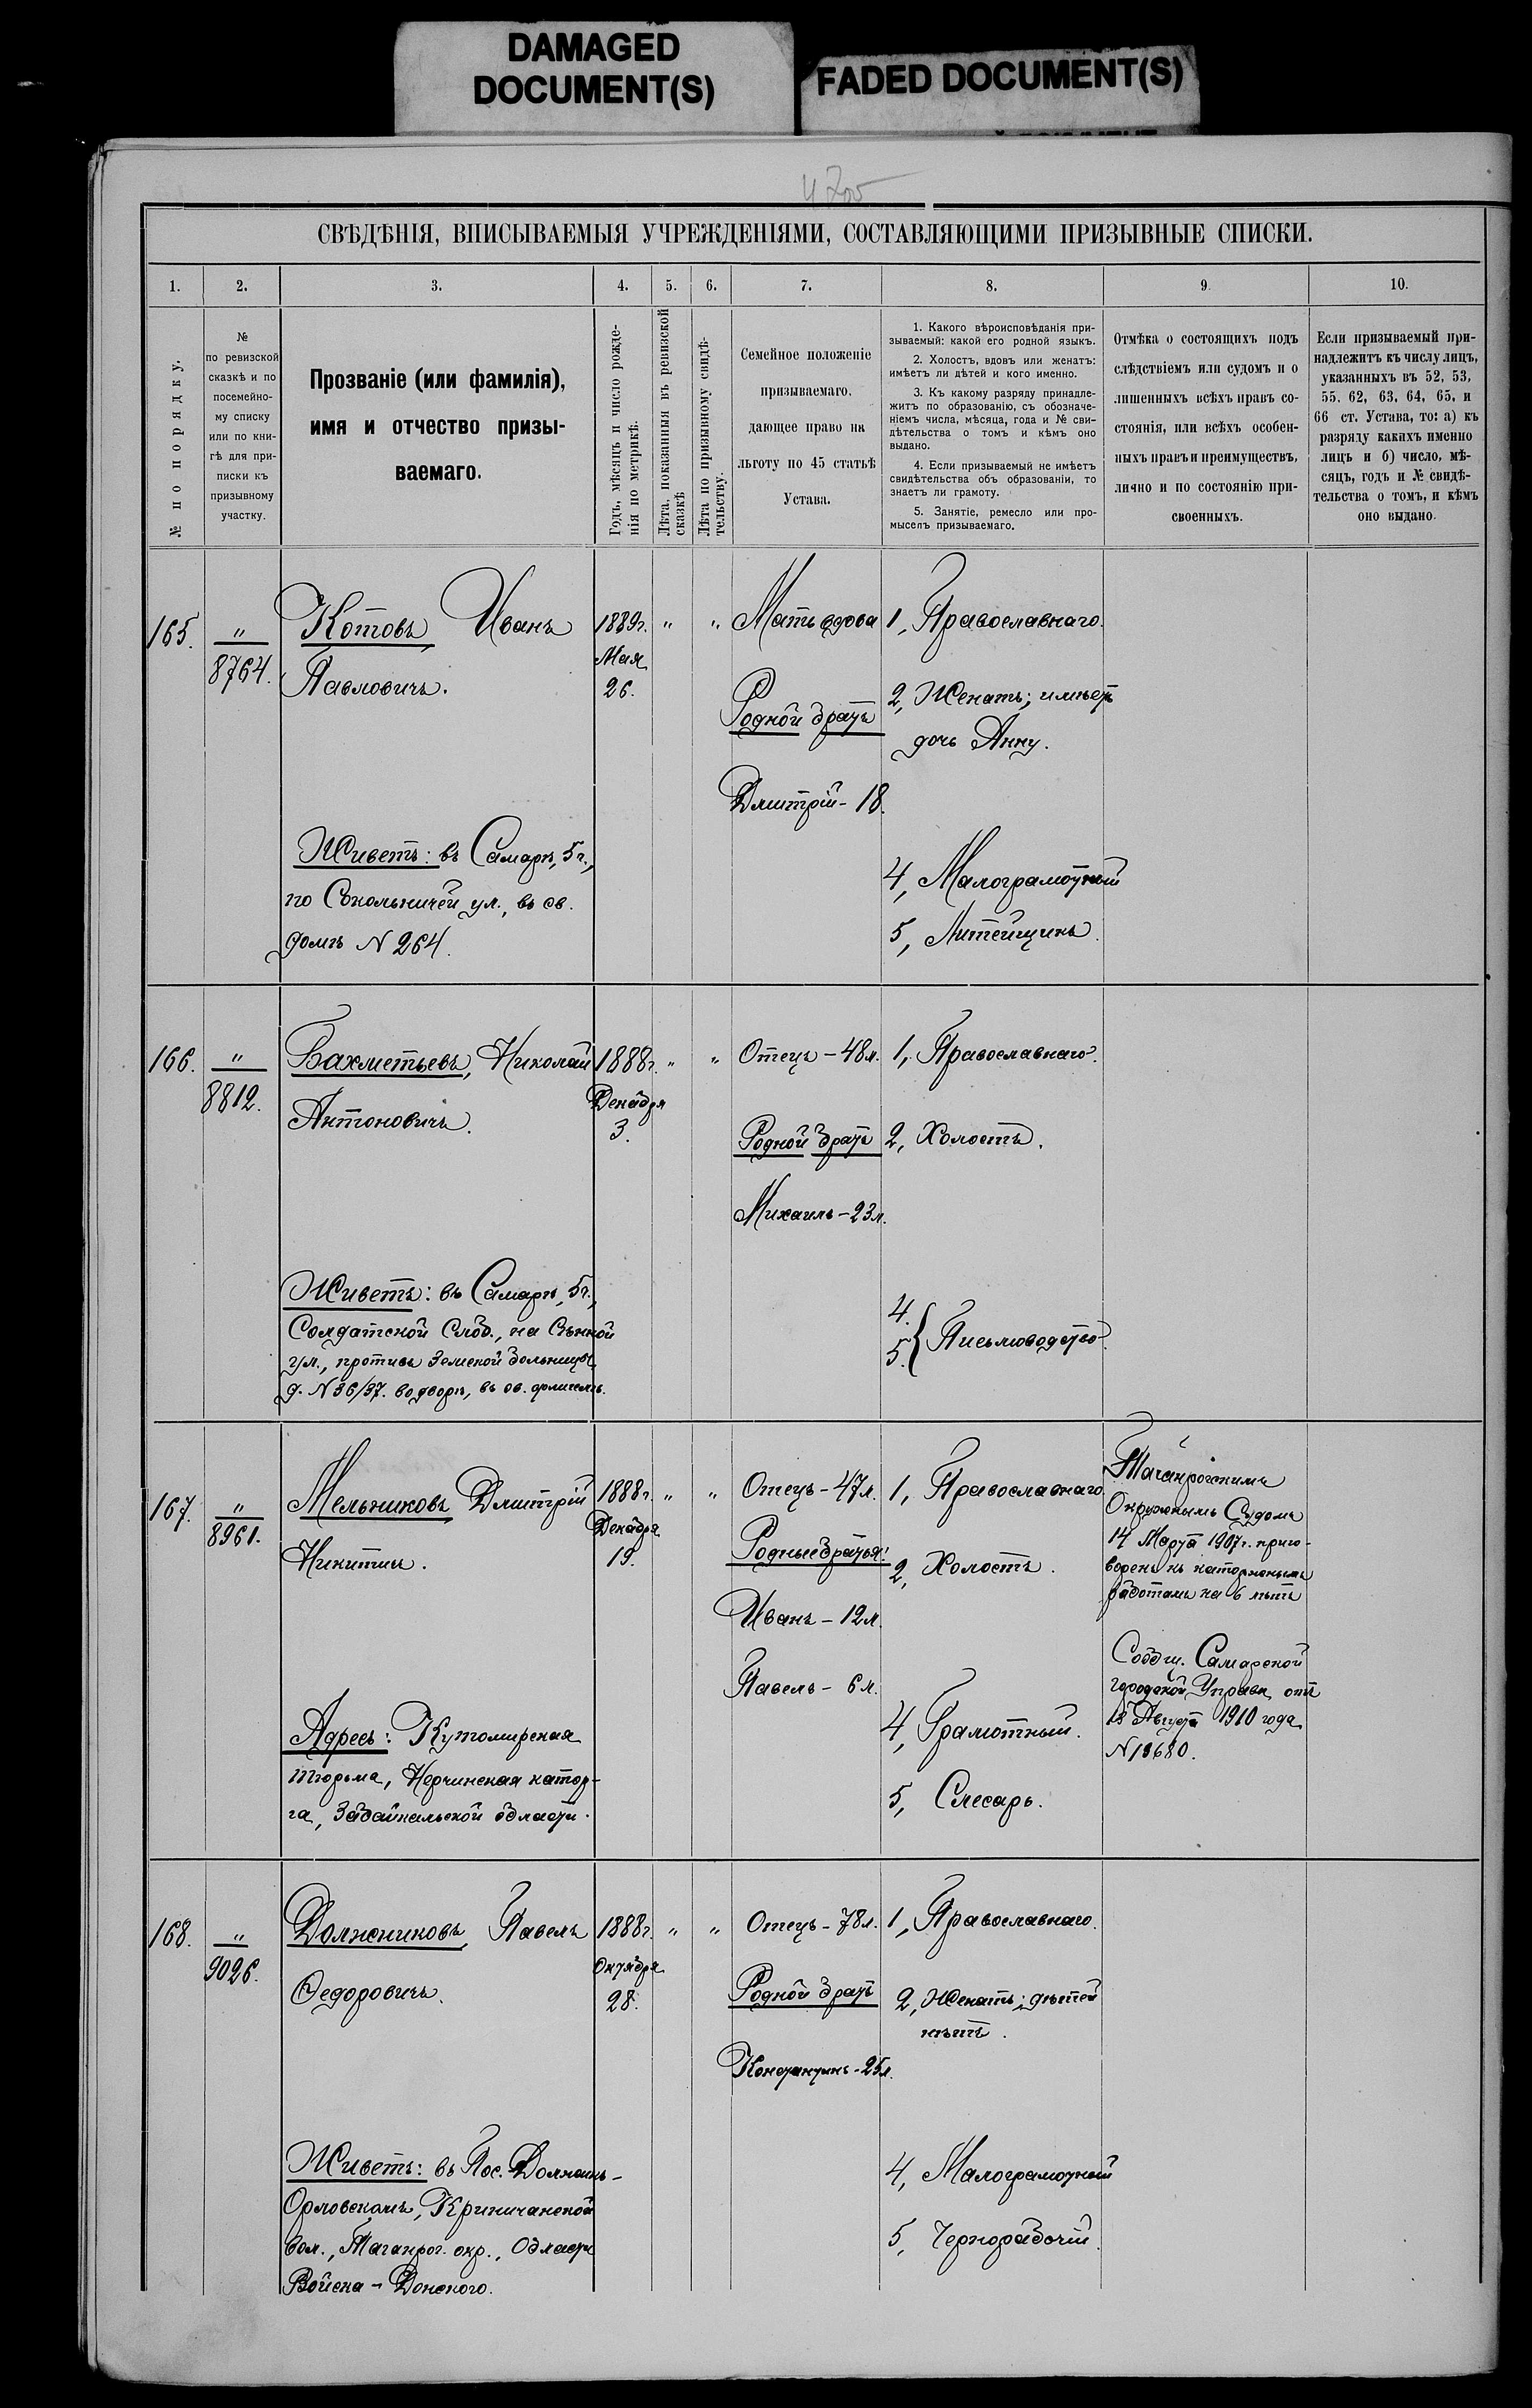 DAMAGED
DOCUMENT(S)
FADED DOCUMENT(S)
СВѢДѢНІЯ, ВПИСЫВАЕМЫЯ УЧРЕЖДЕНІЯМИ, СОСТАВЛЯЮЩИМИ ПРИЗЫВНЫЕ СПИСКИ.
1. 2. 3. 4. 5. 6. 7. 8. 9. 10.
№ по порядку.
№
по ревизской
сказкѣ и по
посемейно-
му списку
или по кни-
гѣ для при-
писки къ
призывному
участку.
Прозваніе (или фамилія),
имя и отчество призы-
ваемаго.
Годъ, мѣсяцъ и число рожде-
нія по метрикѣ.
Лѣта, показанныя въ ревизской
сказкѣ
Лѣта по призывному свидѣ-
тельству.
Семейное положеніе
призываемаго,
дающее право на
льготу по 45 статьѣ
Устава.
1. Какого вѣроисповѣданія при-
зываемый: какой его родной языкъ.
2. Холостъ, вдовъ или женатъ:
имѣетъ ли дѣтей и кого именно.
3. Къ какому разряду принадле-
житъ по образованію, съ обозначе-
ніемъ числа, мѣсяца, года и № сви-
дѣтельства о томъ и кѣмъ оно
выдано.
4. Если призываемый не имѣетъ
свидѣтельства объ образованіи, то
знаетъ ли грамоту.
5. Занятіе, ремесло или про-
мыселъ призываемаго.
Отмѣка о состоящихъ подъ
слѣдствіемъ или судомъ и о
лишенныхъ всѣхъ правъ со-
стоянія, или всѣхъ особен-
ныхъ правъ и преимуществъ,
лично и по состоянію при-
своенныхъ.
Если призываемый при-
надлежитъ къ числу лицъ,
указанныхъ въ 52, 53,
55. 62, 63, 64, 65, и
66 ст. Устава, то: а) къ
разряду какихъ именно
лицъ и б) число, мѣ-
сяцъ, годъ и № свидѣ-
тельства о томъ, и кѣмъ
оно выдано.
165.
"
8764.
Котовъ, Иванъ
Павловичъ.
Живетъ: въ Самарѣ, 5 ч.,
по Сокольничей ул., въ св.
домѣ N 264.
1889г.
Мая
26.
"
"
Мать вдова
Родной братъ
Дмитрій - 18.
1, Православнаго.
2, Женатъ; имѣетъ
дочь Анну.
4, Малограмотный
5, Литейщикъ.
166.
"
8812.
Бахметьевъ, Николай
Антоновичъ.
Живетъ: въ Самарѣ, 5ч.,
Солдатской Слоб., на Сѣнной
ул., противъ Земской больницы,
д. N 36/37. во дворѣ, въ св. флигелѣ.
1888г.
Декабря
3.
"
"
Отецъ - 48л.
Родной братъ
Михаилъ - 23л.
1, Православнаго.
2, Холостъ.
4.
5. { Письмоводство.
167.
"
8961.
Мельниковъ, Дмитрій
Никитич.
Адресъ: Кутомирская
тюрьма, Нерчинская катор-
га, Забайкальской области.
1888г.
Декабря
19.
"
"
Отецъ - 47л.
Родные братья:
Иванъ - 12л.
Павелъ - 6л.
1, Православнаго.
2, Холостъ.
4, Грамотный.
5, Слесарь.
Таганрогскимъ
Окружнымъ Судомъ
14 Марта 1907г. приго-
воренъ къ каторжнымъ
работамъ на 6 лѣтъ
Сообщ. Самарской
городской Управы, отъ
18 Августа 1910 года
N 13680.
168.
"
9026.
Должниковъ, Павелъ
Ѳедоровичъ.
Живетъ: въ Пос.
Орловскомъ, Криничанской
вол., Таганрог. окр., Области
Войска - Донского.
1888г.
Октября
28.
"
"
Отецъ - 78л.
Родной братъ
Константинъ - 25л.
1, Православнаго.
2, Женатъ; дѣтей
нѣтъ.
4, Малограмотный
5, Чернорабочій.